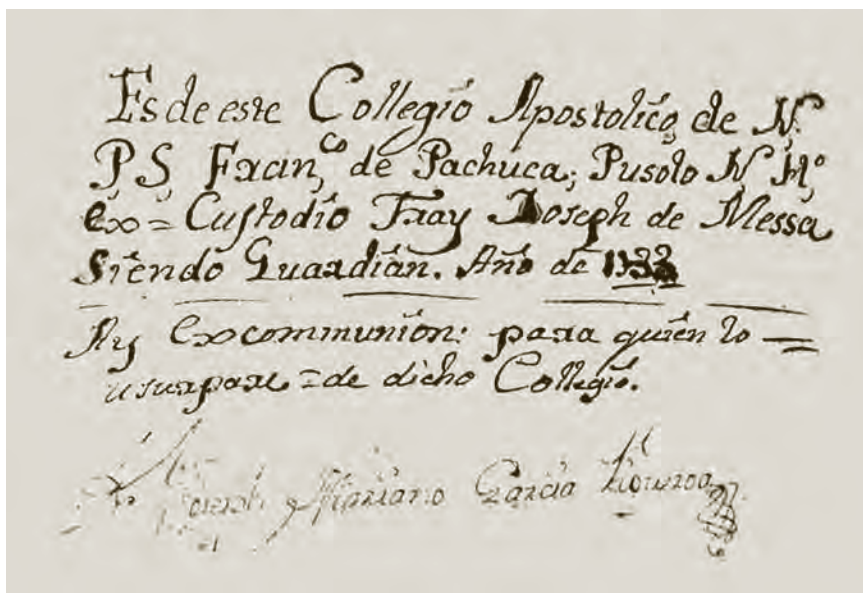 Es de este Collegio Apostolico, de N.
P. S. Fran,co de Pachuca; Pusolo N. H.o
ex = Custodio Fray Joseph de Messa
siendo Guardian. Año de
Ay Excommunion: para quien lo =
usurpare = de dicho Collegio.
Joseph Mariano Garcia